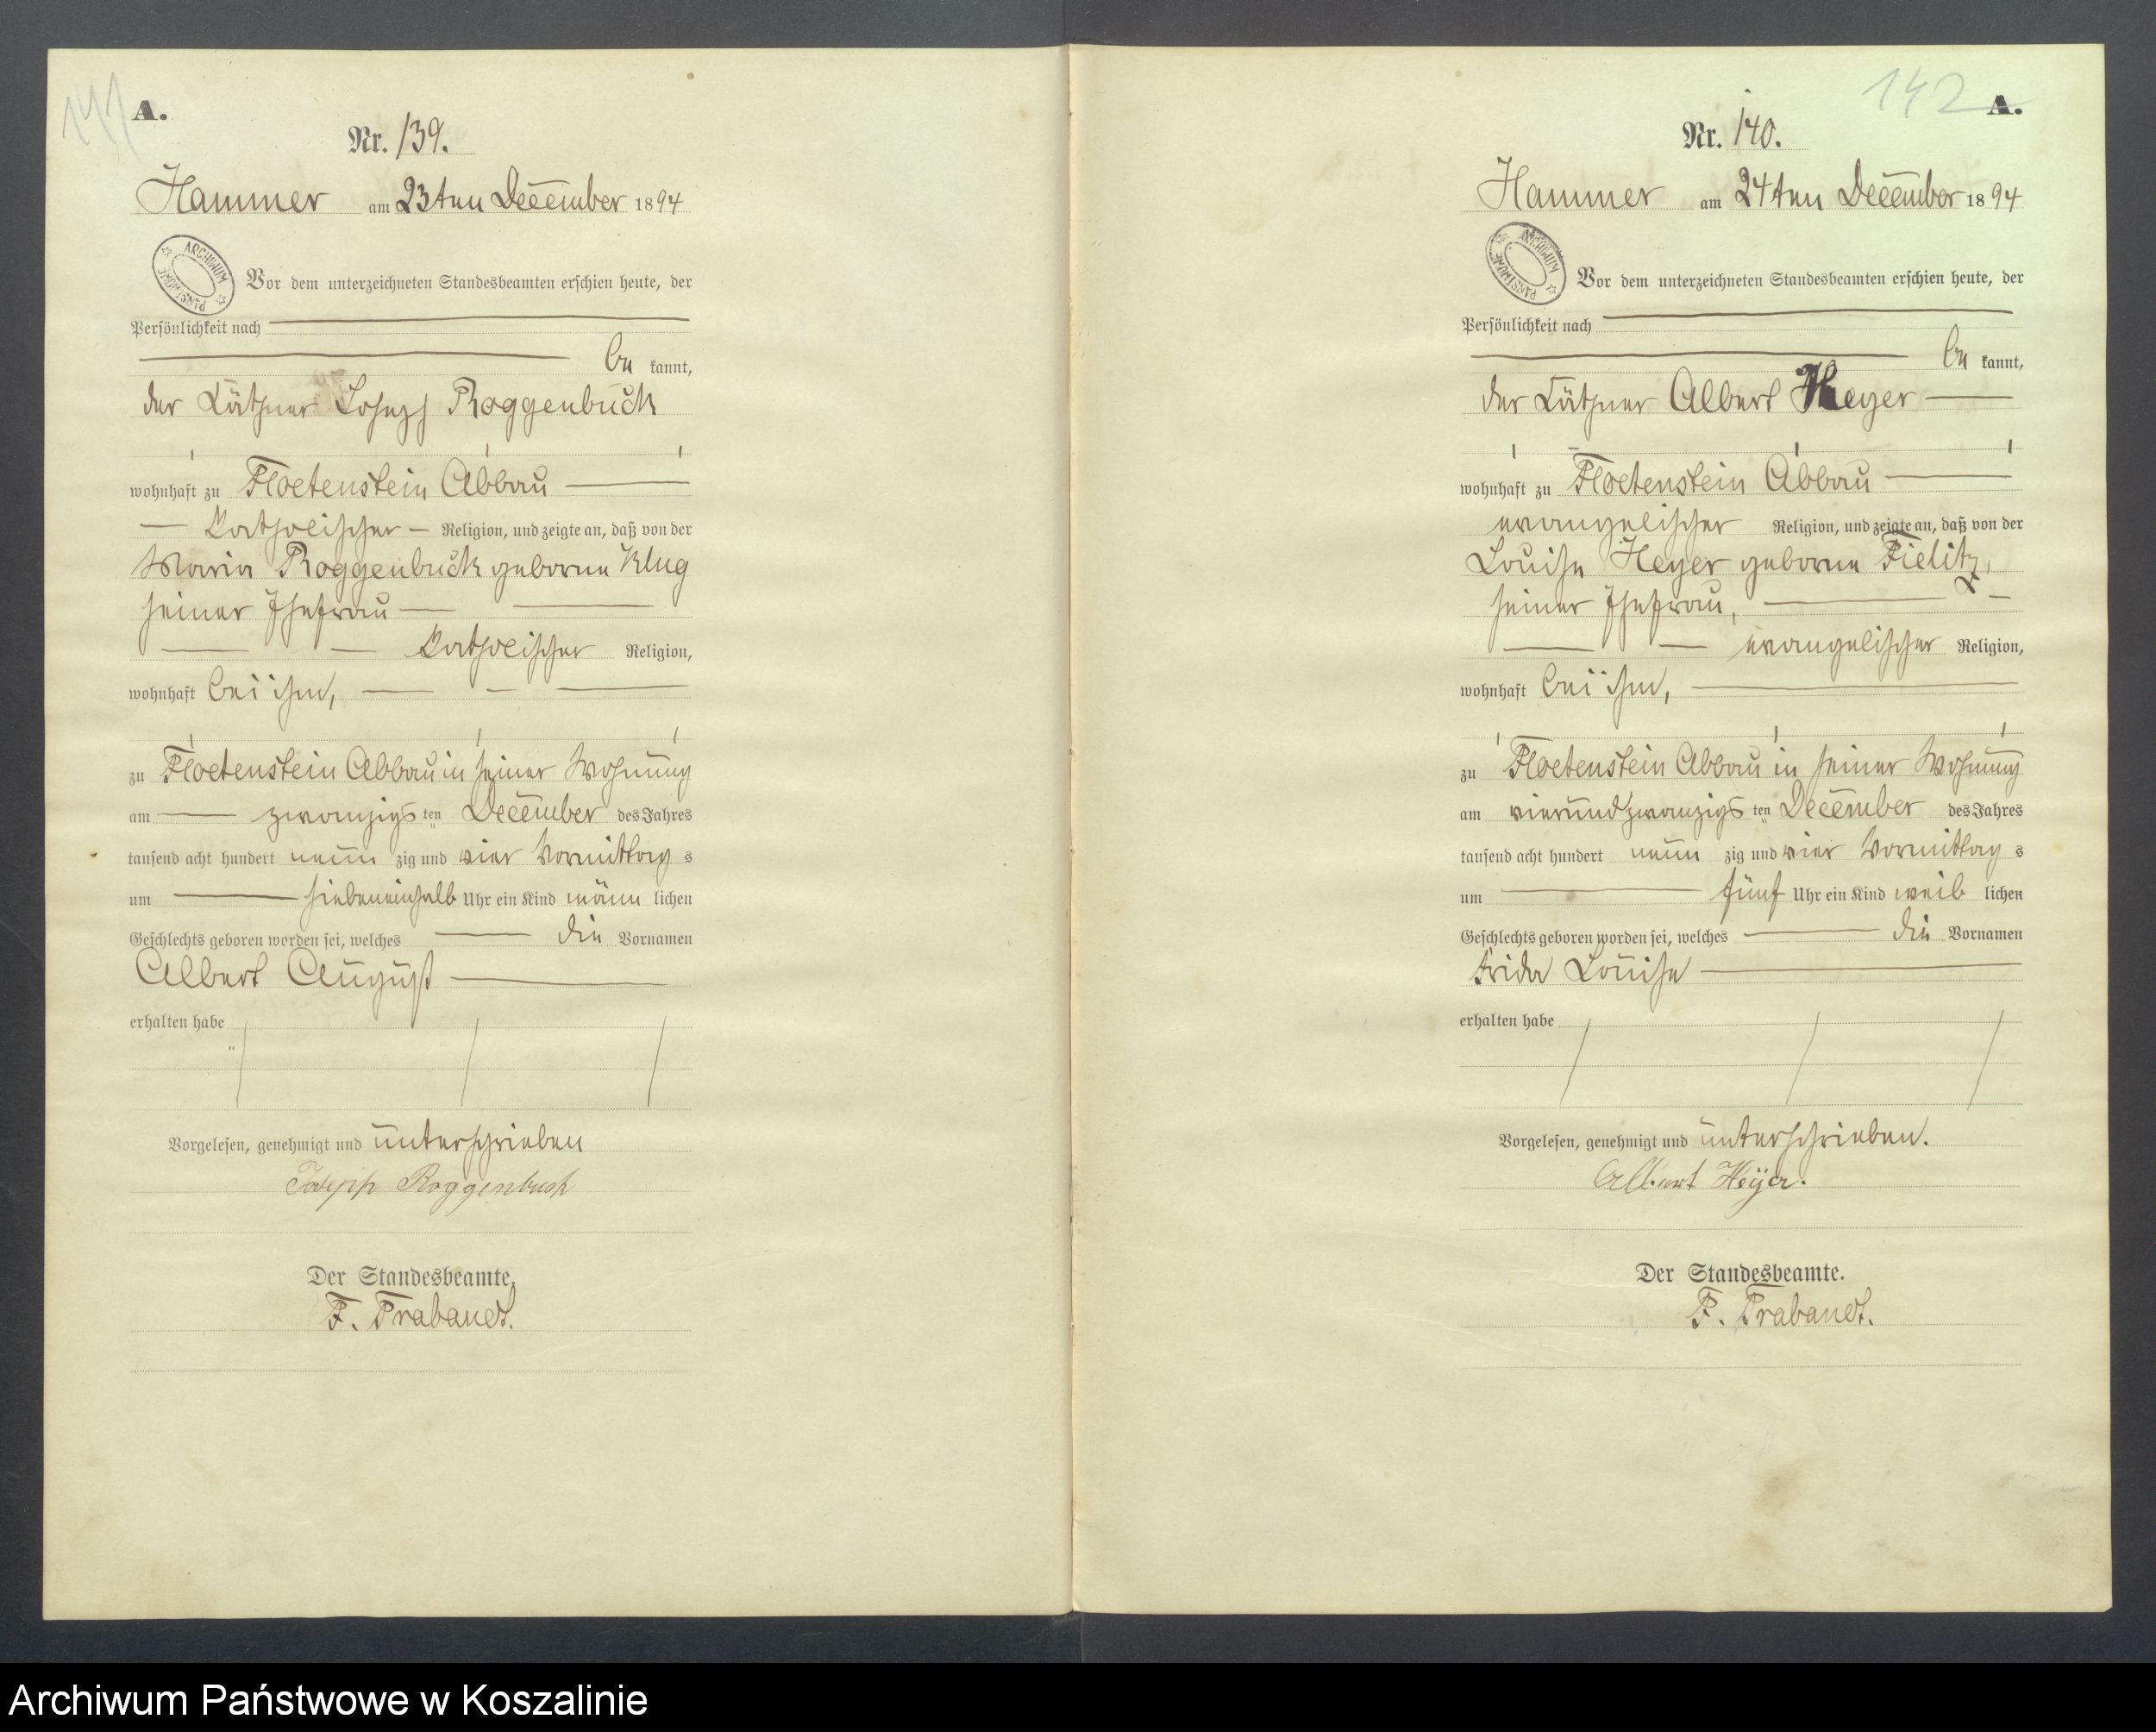 141
A.
Nr. 139.
Hammer am 23ten December 1894
ARCHIWUM PAŃSTWOWE
Vor dem unterzeichneten Standesbeamten erschien heute, der
Persönlichkeit nach
be kannt,
der Käthner Joseph Roggenbuck
wohnhaft zu Floetenstein Abbau
katholischer Religion, und zeigte an, daß von der
Maria Roggenbuck geborne Klug
seiner Ehefrau
katholischer Religion,
wohnhaft bei ihm,
zu Floetenstein Abbau in seiner Wohnung
am zwanzigs ten December des Jahres
tausend acht hundert neun zig und vier Vormittag s
um siebeneinhalb Uhr ein Kind männ lichen
Geschlechts geboren worden sei, welches die Vornamen
Albert August
erhalten habe
Vorgelesen, genehmigt und unterschrieben
Josepp Roggenbuck
Der Standesbeamte.
F. Trabandt.
142
A.
Nr. 140.
Hammer am 24ten December 1894
ARCHIWUM PAŃSTWOWE
Vor dem unterzeichneten Standesbeamten erschien heute, der
Persönlichkeit nach
be kannt,
der Käthner Albert Heyer
wohnhaft zu Floetenstein Abbau
evangelischer Religion, und zeigte an, daß von der
Louise Heyer geborne Fielitz,
seiner Ehefrau,
evangelischer Religion,
wohnhaft bei ihm,
zu Floetenstein Abbau in seiner Wohnung
am vierundzwanzigs ten December des Jahres
tausend acht hundert neun zig und vier Vormittag s
um fünf Uhr ein Kind weib lichen
Geschlechts geboren worden sei, welches die Vornamen
Frida Louise
erhalten habe
Vorgelesen, genehmigt und unterschrieben.
Albert Heÿer.
Der Standesbeamte.
F. Trabandt.
Archiwum Państwowe w Koszalinie